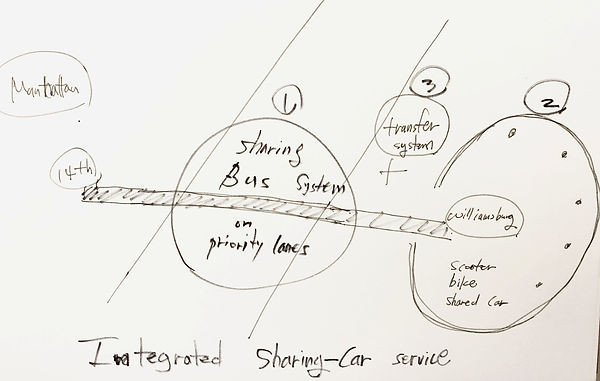 Manhattan
14th
1
sharing
Bus System
on
priority lanes
3
transfer
system
+
2
Williamsburg
scooter
bike
shared car
Integrated Sharing-Car service